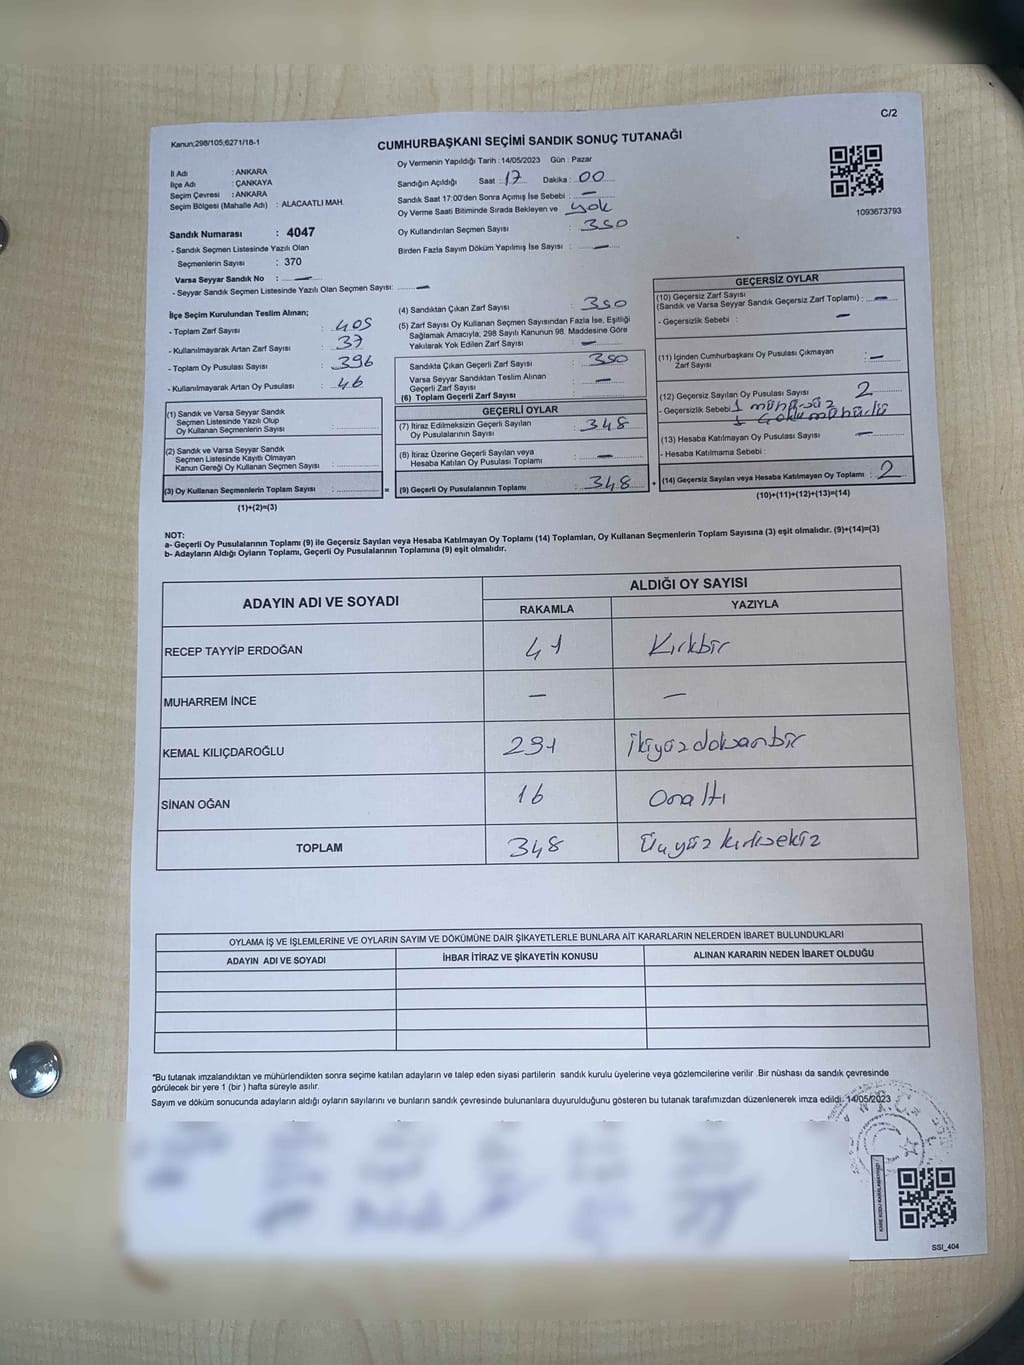 C/2
Kanun;298/105;6271/18-1
CUMHURBAŞKANI SEÇİMİ SANDIK SONUÇ TUTANAĞI
Oy Vermenin Yapıldığı Tarih : 14/05/2023 Gün : Pazar
İl Adı : ANKARA
İlçe Adı : ÇANKAYA
Seçim Çevresi : ANKARA
Seçim Bölgesi (Mahalle Adı) : ALACAATLI MAH.
Sandığın Açıldığı Saat : 17 Dakika : 00
Sandık Saat 17:00'den Sonra Açımış İse Sebebi : —
Oy Verme Saati Bitiminde Sırada Bekleyen ve yok
Oy Kullandırılan Seçmen Sayısı : 350
Birden Fazla Sayım Döküm Yapılmış İse Sayısı : —
1093673793
Sandık Numarası : 4047
- Sandık Seçmen Listesinde Yazılı Olan
Seçmenlerin Sayısı : 370
Varsa Seyyar Sandık No : —
- Seyyar Sandık Seçmen Listesinde Yazılı Olan Seçmen Sayısı: —
İlçe Seçim Kurulundan Teslim Alınan;
- Toplam Zarf Sayısı : 405
- Kullanılmayarak Artan Zarf Sayısı : 37
- Toplam Oy Pusulası Sayısı : 396
- Kullanılmayarak Artan Oy Pusulası : 46
(1) Sandık ve Varsa Seyyar Sandık
Seçmen Listesinde Yazılı Olup
Oy Kullanan Seçmenlerin Sayısı :
(2) Sandık ve Varsa Seyyar Sandık
Seçmen Listesinde Kayıtlı Olmayan
Kanun Gereği Oy Kullanan Seçmen Sayısı :
(3) Oy Kullanan Seçmenlerin Toplam Sayısı : =
(1)+(2)=(3)
(4) Sandıktan Çıkan Zarf Sayısı : 350
(5) Zarf Sayısı Oy Kullanan Seçmen Sayısından Fazla İse, Eşitliği
Sağlamak Amacıyla; 298 Sayılı Kanunun 98. Maddesine Göre
Yakılarak Yok Edilen Zarf Sayısı : —
Sandıkta Çıkan Geçerli Zarf Sayısı : 350
Varsa Seyyar Sandıktan Teslim Alınan
Geçerli Zarf Sayısı : —
(6) Toplam Geçerli Zarf Sayısı
GEÇERLİ OYLAR
(7) İtiraz Edilmeksizin Geçerli Sayılan
Oy Pusulalarının Sayısı : 348
(8) İtiraz Üzerine Geçerli Sayılan veya
Hesaba Katılan Oy Pusulası Toplamı : —
(9) Geçerli Oy Pusulalarının Toplamı : 348 +
GEÇERSİZ OYLAR
(10) Geçersiz Zarf Sayısı
(Sandık ve Varsa Seyyar Sandık Geçersiz Zarf Toplamı) : —
- Geçersizlik Sebebi : —
(11) İçinden Cumhurbaşkanı Oy Pusulası Çıkmayan
Zarf Sayısı : —
(12) Geçersiz Sayılan Oy Pusulası Sayısı : 2
- Geçersizlik Sebebi : 1 mühürsüz
1 çoklu mühürlü
(13) Hesaba Katılmayan Oy Pusulası Sayısı : —
- Hesaba Katılmama Sebebi :
(14) Geçersiz Sayılan veya Hesaba Katılmayan Oy Toplamı : 2
(10)+(11)+(12)+(13)=(14)
NOT:
a- Geçerli Oy Pusulalarının Toplamı (9) ile Geçersiz Sayılan veya Hesaba Katılmayan Oy Toplamı (14) Toplamları, Oy Kullanan Seçmenlerin Toplam Sayısına (3) eşit olmalıdır. (9)+(14)=(3)
b- Adayların Aldığı Oyların Toplamı, Geçerli Oy Pusulalarının Toplamına (9) eşit olmalıdır.
ADAYIN ADI VE SOYADI
ALDIĞI OY SAYISI
RAKAMLA YAZIYLA
RECEP TAYYİP ERDOĞAN 41 Kırkbir
MUHARREM İNCE — —
KEMAL KILIÇDAROĞLU 291 ikiyüzdoksanbir
SİNAN OĞAN 16 Onaltı
TOPLAM 348 Üçyüz kırksekiz
OYLAMA İŞ VE İŞLEMLERİNE VE OYLARIN SAYIM VE DÖKÜMÜNE DAİR ŞİKAYETLERLE BUNLARA AİT KARARLARIN NELERDEN İBARET BULUNDUKLARI
ADAYIN ADI VE SOYADI İHBAR İTİRAZ VE ŞİKAYETİN KONUSU ALINAN KARARIN NEDEN İBARET OLDUĞU
*Bu tutanak imzalandıktan ve mühürlendikten sonra seçime katılan adayların ve talep eden siyasi partilerin sandık kurulu üyelerine veya gözlemcilerine verilir .Bir nüshası da sandık çevresinde
görülecek bir yere 1 (bir ) hafta süreyle asılır.
Sayım ve döküm sonucunda adayların aldığı oyların sayılarını ve bunların sandık çevresinde bulunanlara duyurulduğunu gösteren bu tutanak tarafımızdan düzenlenerek imza edildi. 14/05/2023
SSI_404